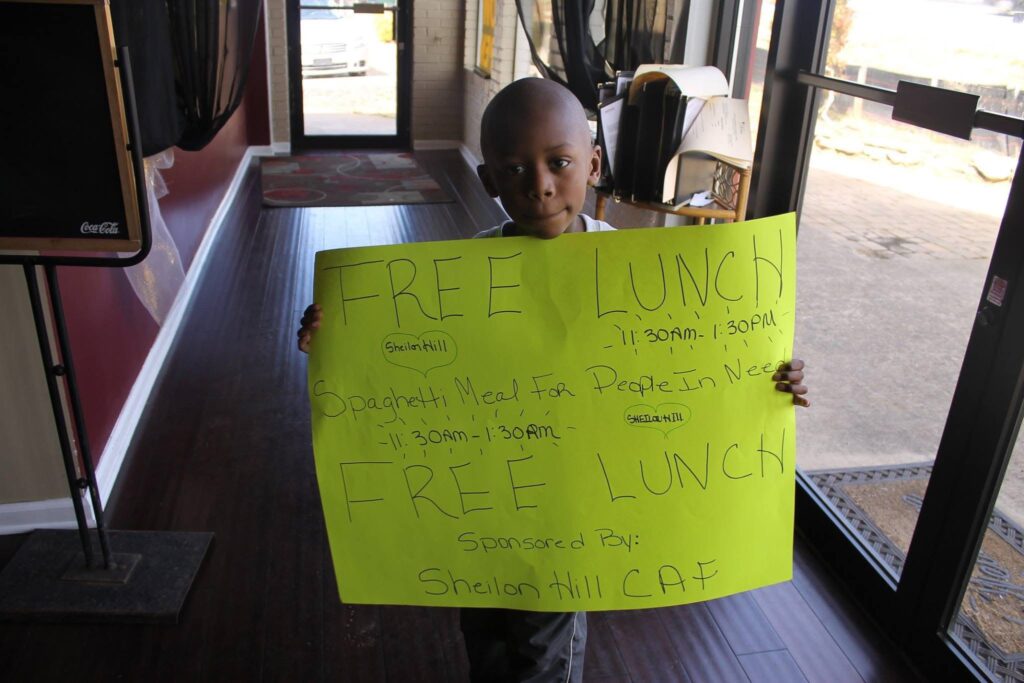 FREE LUNCH
11:30AM-1:30PM
Sheilon Hill
Spaghetti Meal For People In Need
SHEILOU HILL
-11:30AM-1:30AM-
FREE LUNCH
Sponsored By:
Sheilon Hill CAF
Coca-Cola